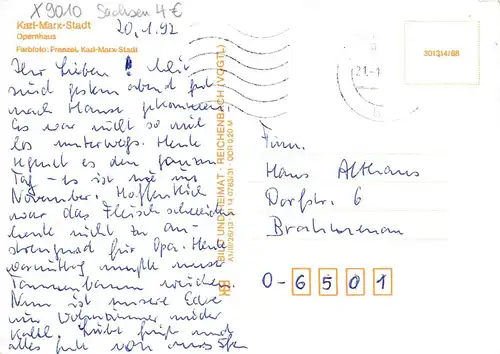 X9010 Sachsen 4 €
Karl-Marx-Stadt
Opernhaus
20.1.92
Farbfoto: Frenzel, Karl-Marx-Stadt
Ihr Lieben! Wir
sind gestern abend gut
nach Hause gekommen.
Es war nicht so viel
los unterwegs. Heute
regnet es den ganzen
Tag - es ist wie im
November. Hoffentlich
war das Fleischschneiden
heute nicht zu an-
strengend für Opa. Heute
vormittag mußte unser
Tannenbaum weichen.
Nun ist unsere Ecke
im Wohnzimmer wieder
kahl. und
alles gute von uns
BILD UND HEIMAT · REICHENBACH (VOGTL)
A1/B/26/13 01 14 0783/31 · DDR 0,20 M
301314/88
21.-1
Fam.
Hans Althaus
Dorfstr. 6
Brahmenau
O-6501